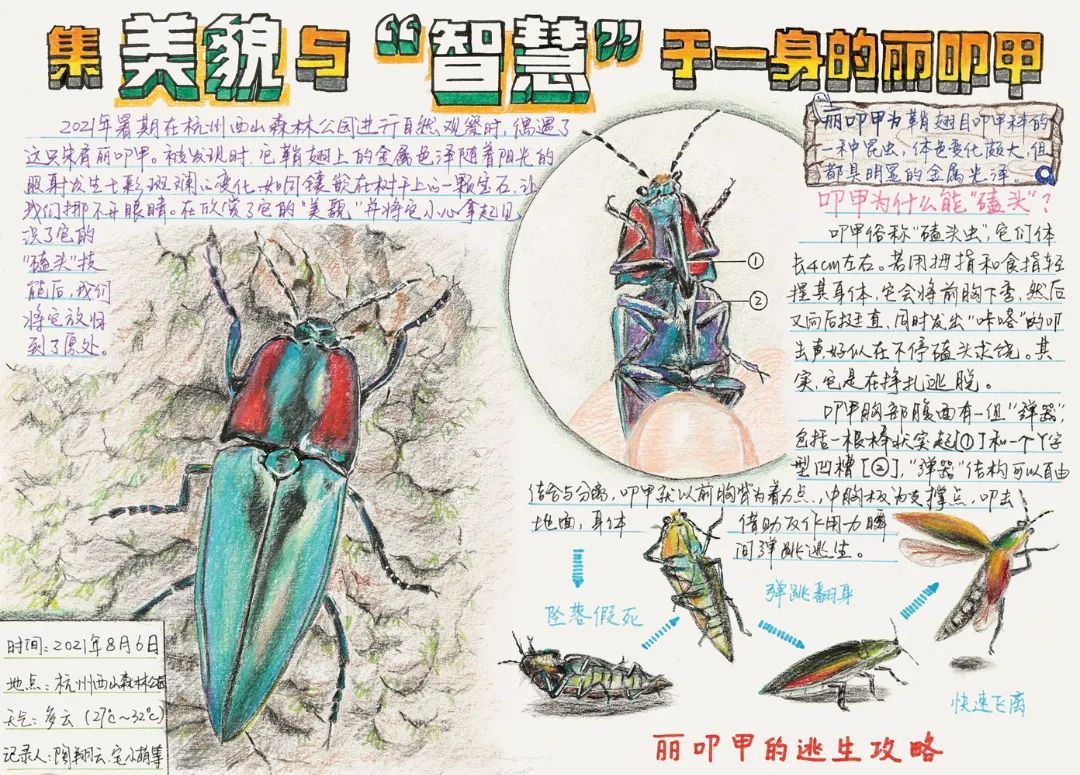 集美貌与“智慧”于一身的丽叩甲
2021年暑期在杭州西山森林公园进行自然观察时，偶遇了
这只朱肩丽叩甲。被发现时，它鞘翅上的金属色泽随着阳光的
照射发生七彩斑斓的变化，如同镶嵌在树干上的一颗宝石，让
我们挪不开眼睛。在欣赏了它的“美貌”并将它小心拿起见
识了它的
“磕头”技
能后，我们
将它放归
到了原处。
丽叩甲为鞘翅目叩甲科的
一种昆虫，体色变化颇大，但
都具明显的金属光泽。
叩甲为什么能“磕头”？
叩甲俗称“磕头虫”，它们体
长4cm左右。若用拇指和食指轻
捏其身体，它会将前胸下弯，然后
又向后挺直，同时发出“咔嗒”的叩
击声好似在不停磕头求饶。其
实，它是在挣扎逃脱。
叩甲胸部腹面有一组“弹器”，
包括一根棒状突起[①]和一个Y字
型凹槽[②]，“弹器”结构可以自由
结合与分离，叩甲就以前胸背为着力点、中胸板为支撑点，叩击
地面，身体
借助反作用力瞬
间弹跳逃生。
①
②
坠落假死
弹跳翻身
快速飞离
丽叩甲的逃生攻略
时间：2021年8月6日
地点：杭州西山森林公园
天气：多云（27℃～32℃）
记录人：陶翔云、宝小萌等